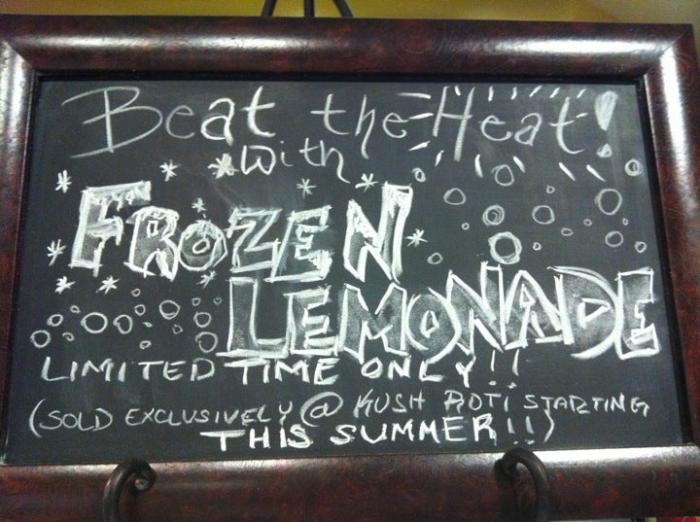 Beat the Heat!
with
FROZEN
LEMONADE
LIMITED TIME ONLY!!
(SOLD EXCLUSIVELY @ KUSH ROTI STARTING
THIS SUMMER!!)